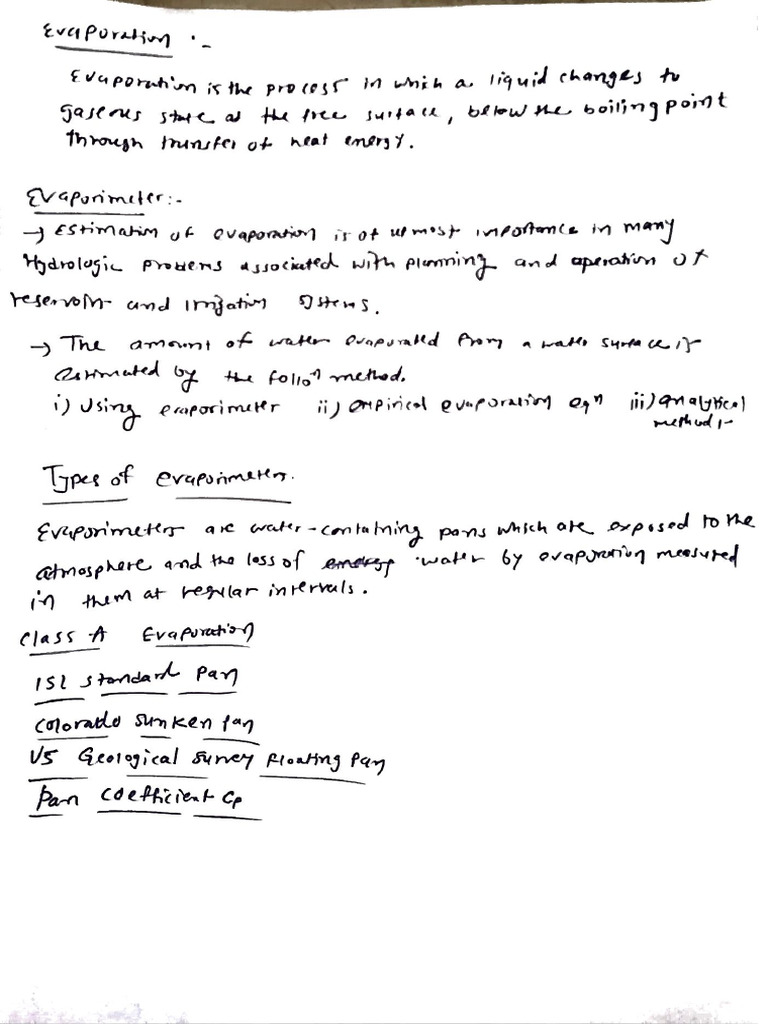 Evaporation :-
Evaporation is the process in which a liquid changes to
gaseous state at the free surface, below the boiling point
through transfer of heat energy.
Evaporimeter:-
→ Estimation of evaporation is of upmost importance in many
Hydrologic problems associated with planning and operation of
reservoir and irrigation systems.
→ The amount of water evaporated from a water surface is
estimated by the follon method.
i) Using evaporimeter ii) empirical evaporation eqn iii) analytical
method :-
Types of evaporimeters.
Evaporimeters are water-containing pans which are exposed to the
atmosphere and the loss of water by evaporation measured
in them at regular intervals.
Class A Evaporation
ISI standard Pan
Colorado sunken pan
US Geological Survey Floating Pan
Pan coefficient Cp